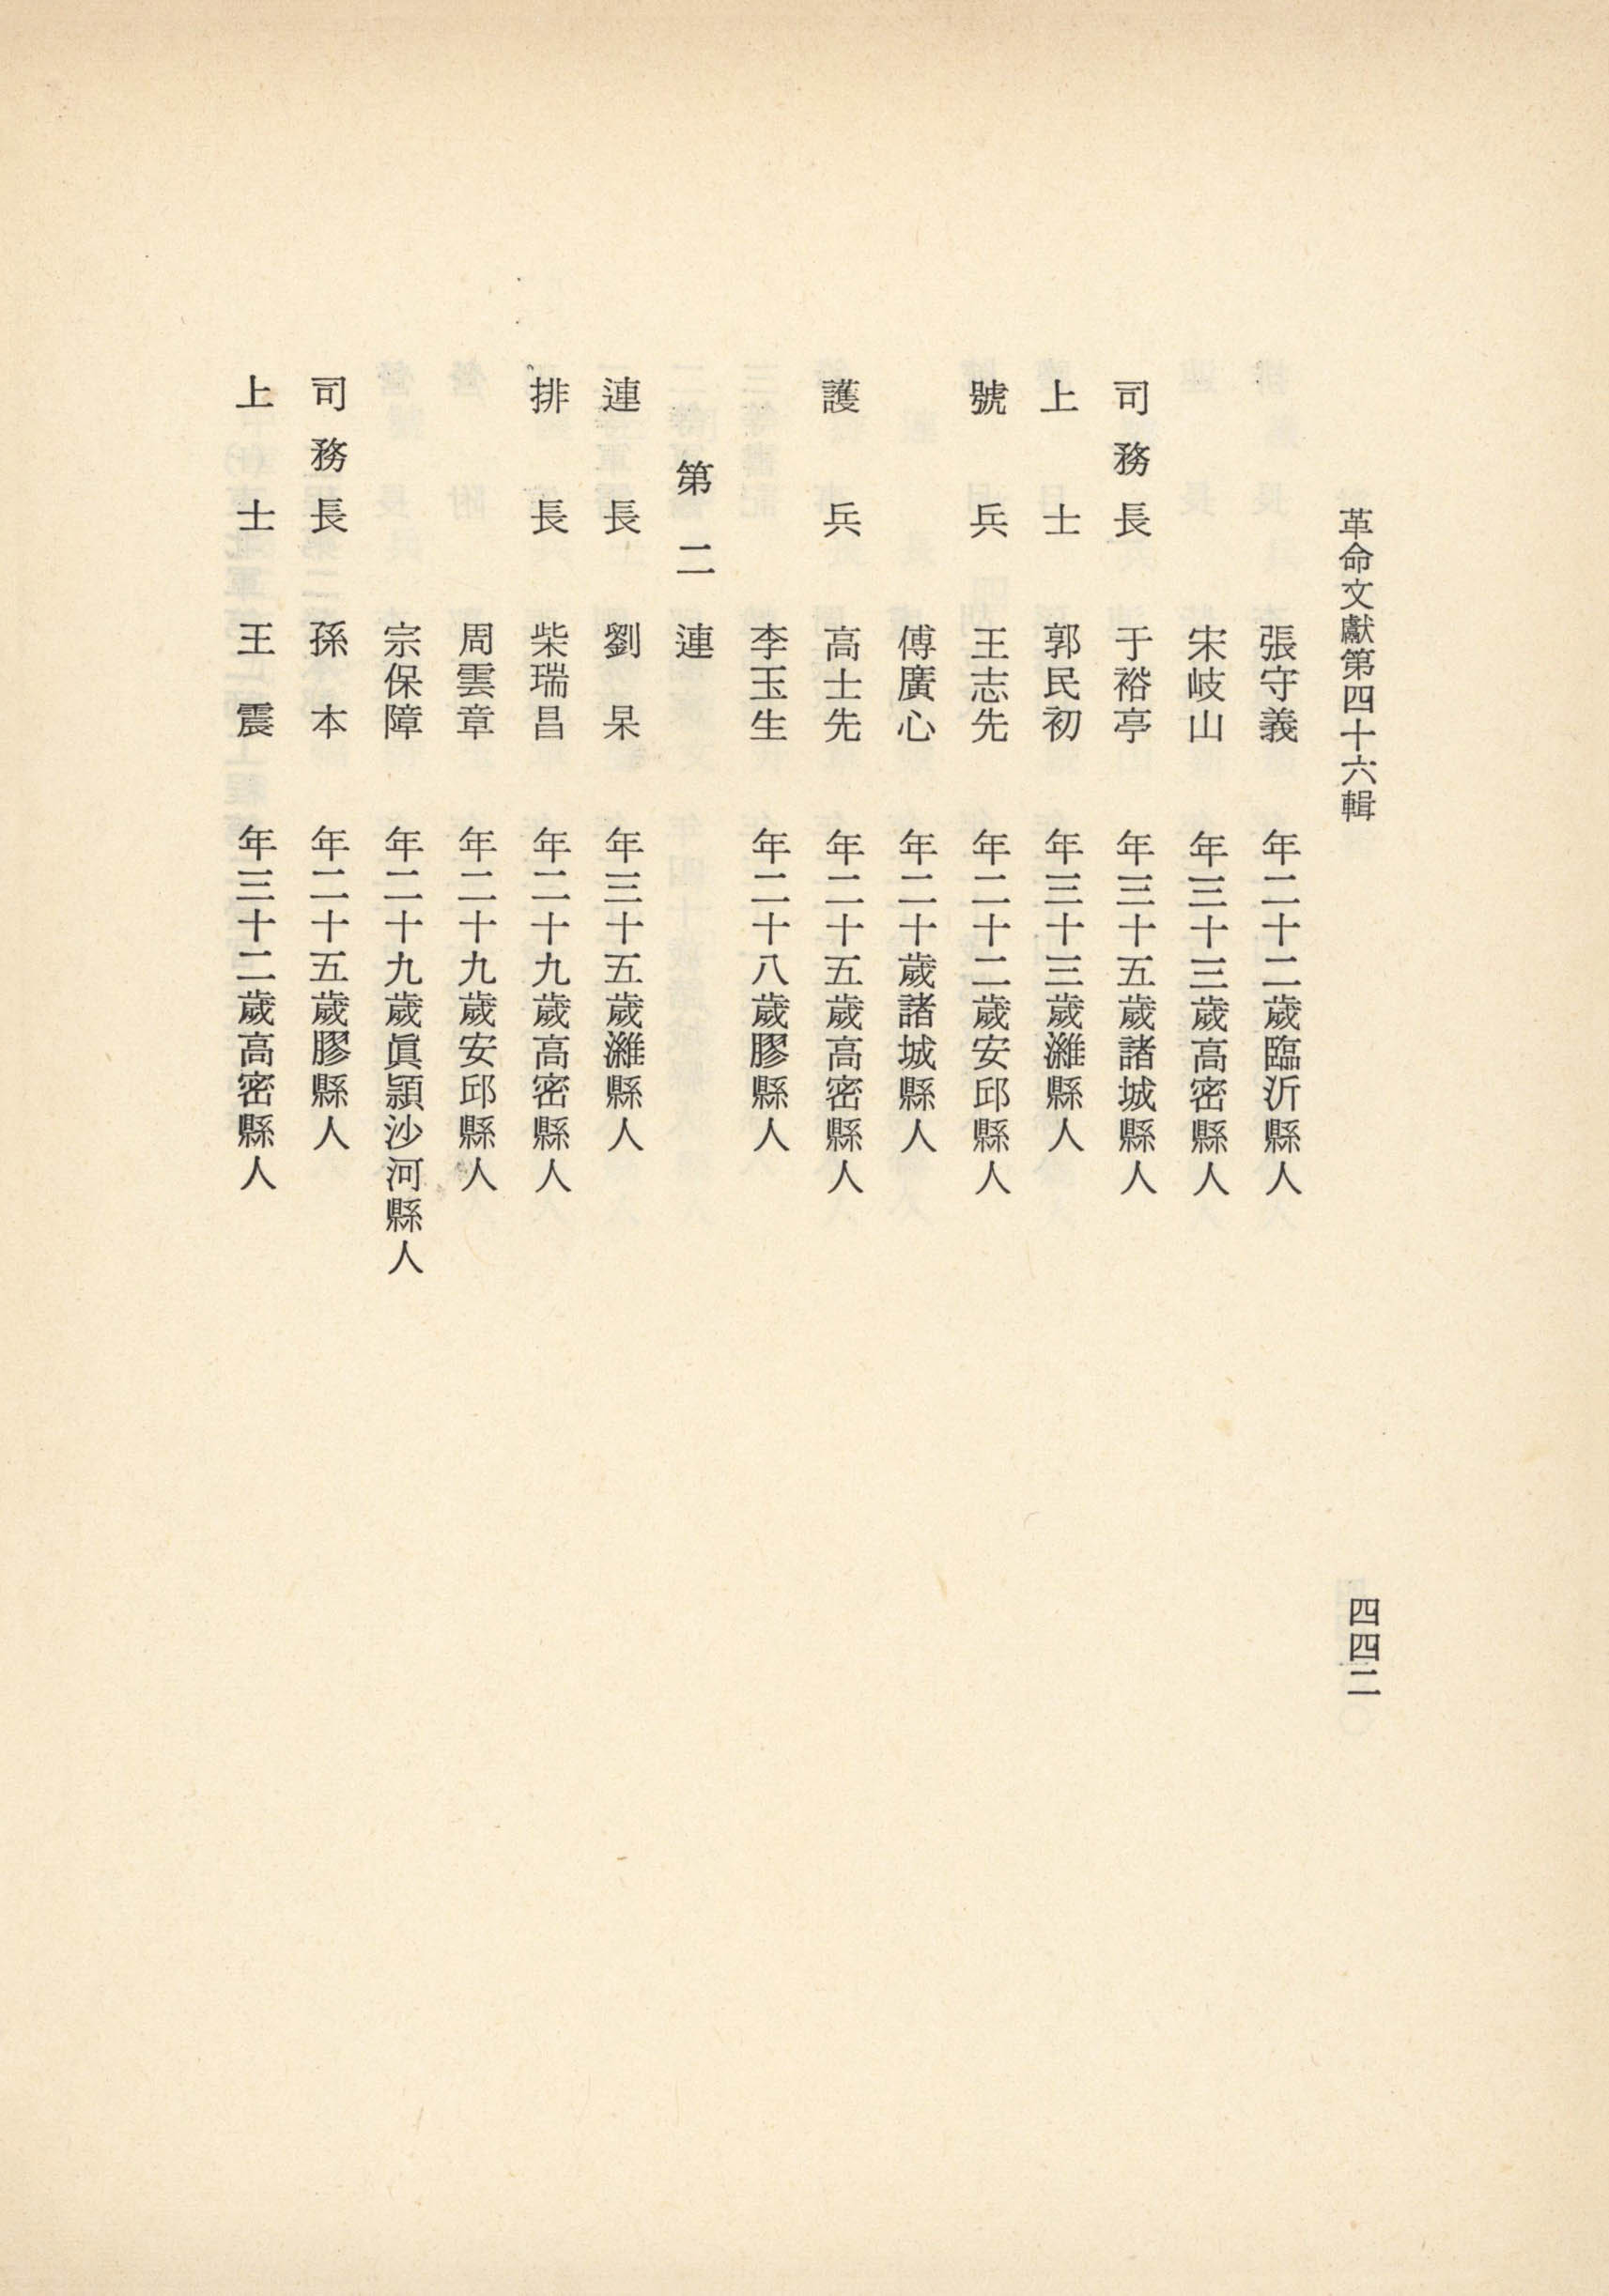 革命文獻第四十六輯
四四二
張守義 年二十二歲臨沂縣人
宋岐山 年三十三歲高密縣人
司務長 于裕亭 年三十五歲諸城縣人
上士 郭民初 年三十三歲濰縣人
號兵 王志先 年二十二歲安邱縣人
傅廣心 年二十歲諸城縣人
護兵 高士先 年二十五歲高密縣人
李玉生 年二十八歲膠縣人
第二連
連長 劉杲 年三十五歲濰縣人
排長 柴瑞昌 年二十九歲高密縣人
周雲章 年二十九歲安邱縣人
宗保障 年二十九歲眞潁沙河縣人
司務長 孫本 年二十五歲膠縣人
上士 王震 年三十二歲高密縣人